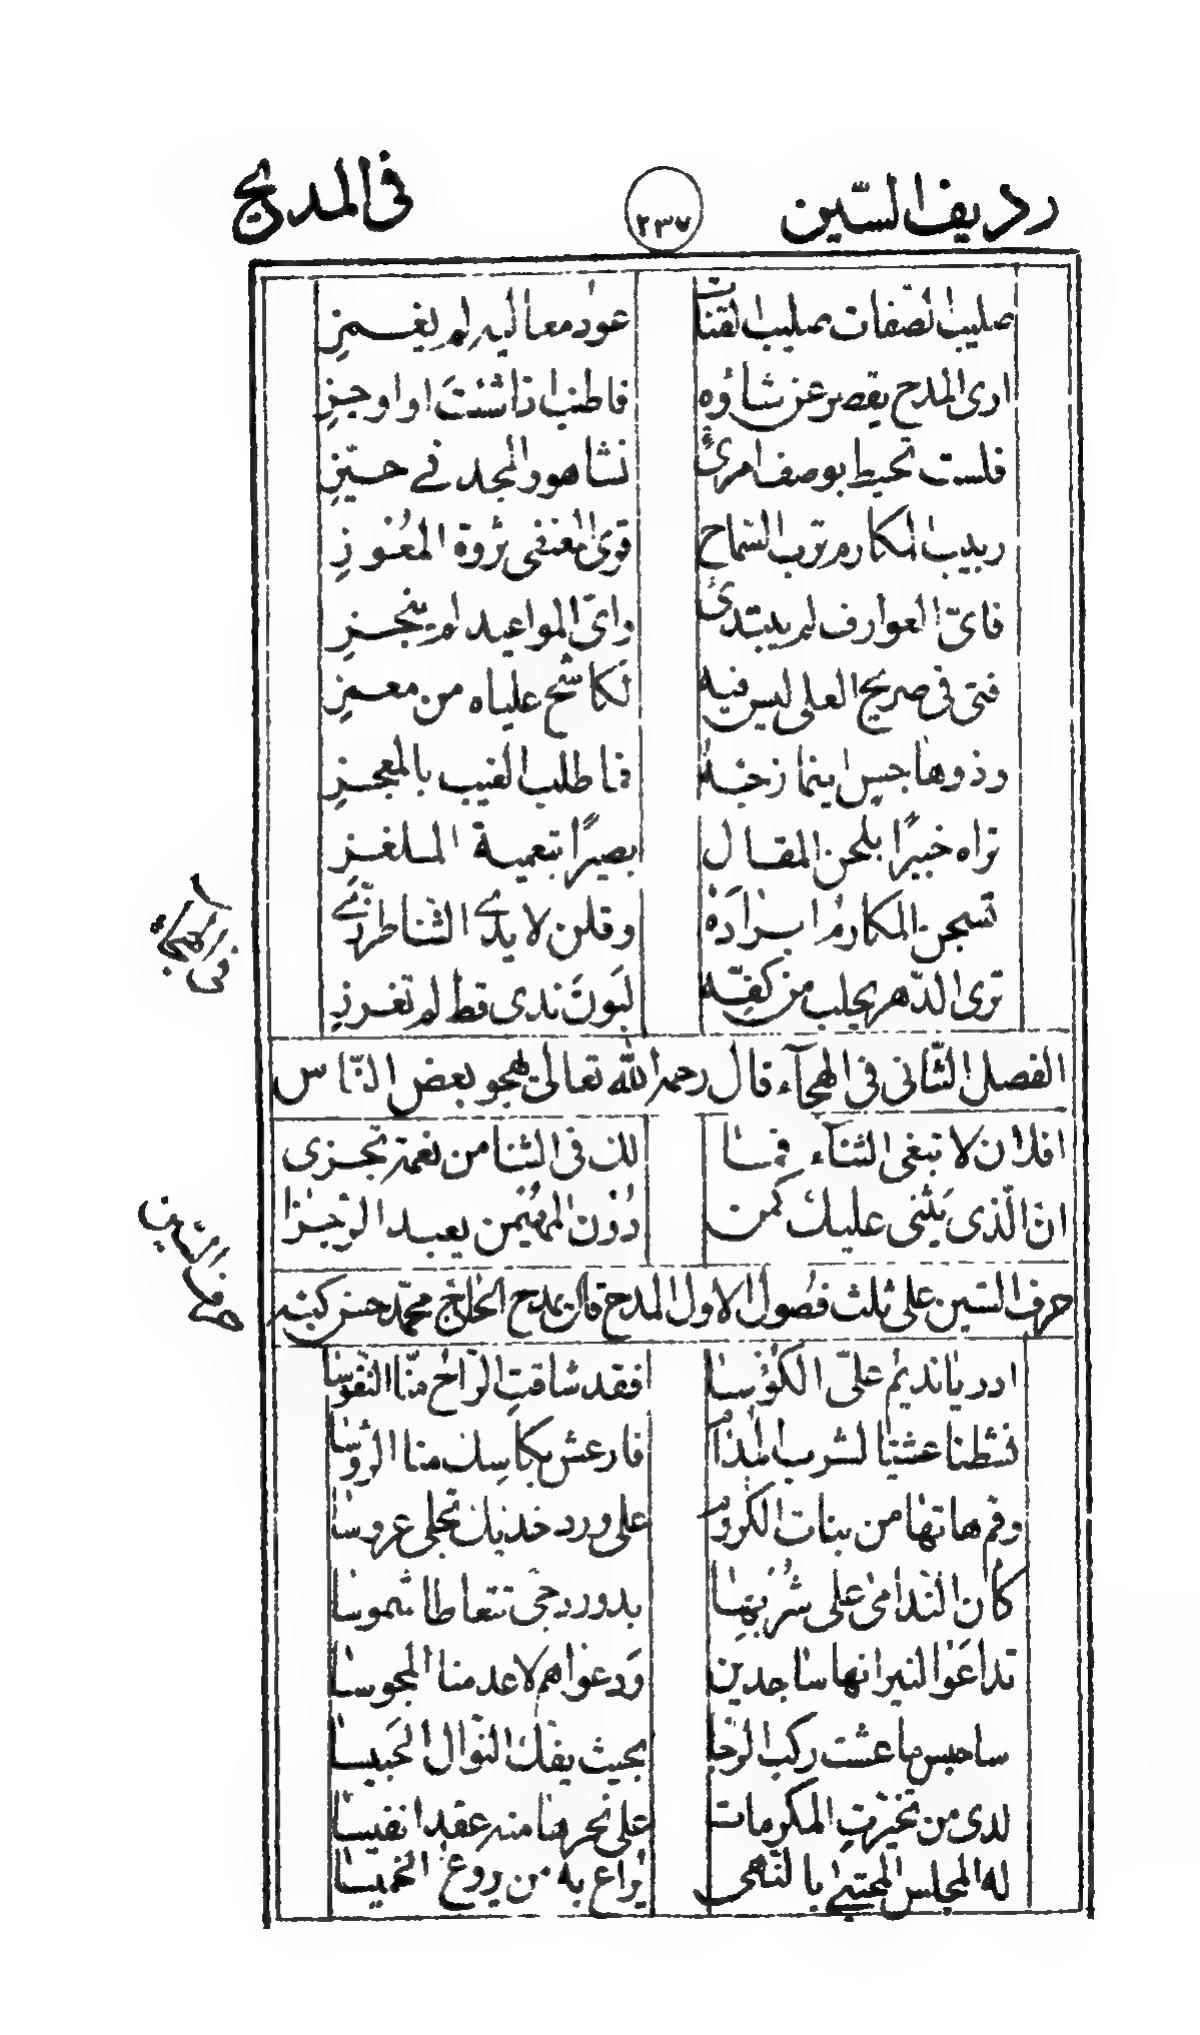 رديف السّين ٢٣٧ في المديح
صليب الصفات صليب القنات عود معاليه لم يغمز
ارى المدح يقصر عن شاؤه فاطنب اذا شئت او اوجز
فلست تحيط بوصف امرئ نشا هو والمجد في حيّز
ربيب المكارم ترب السّماح قوى المعتفى ثروة المعوز
فاىّ العوارف لم يبتدئ واىّ المواعيد لم ينجز
فتى في صريح العلى ليس فيه لكاشح علياه من مغمز
وذو هاجس اينما زجّه فما طلب الغيب بالمعجز
تراه خبيرًا بلحن المقال بصيرًا بتعمية الملغز
نسجن المكارم ابراده وقلن لايدى الثنا طرّزي
ترى الدّهر يحلب من كفّه لبون ندى قط لم تغرز
في الهجاء
الفصل الثّاني في الهجآء قال رحمه الله تعالى يهجو بعض النّاس
افلان لا تبغى الثنآء فما لك في الثنا من نعمة تجزى
انّ الّذى يثنى عليك كمن دون المهيمن يعبد الرّجزا
حرف السّين
حرف السّين على ثلث فصول الاول المدح قال يمدح الحاج محمّد حسن كبّه
ادر يا نديم علىّ الكؤسا فقد شاقت الرّاح منّا النّفوسا
نشطنا عشيّا لشرب المدام فارعش بكاسك منا الرؤسا
وقم هاتها من بنات الكروم على ورد خدّيك تجلى عروسا
كأن النّدامى على شربها بدور دجى تتعاطا شموسا
تداعوا لنيرانها ساجدين ودعواهم لا عدمنا المجوسا
ساحبس ما عشت ركب الرجا بحيث يفك النوال الحبيسا
لدى من تخيّرت المكرمات على نحرها منه عقدا نفيسا
له المجلس المحتبى بالنّهى يراع به من يروع الخميسا